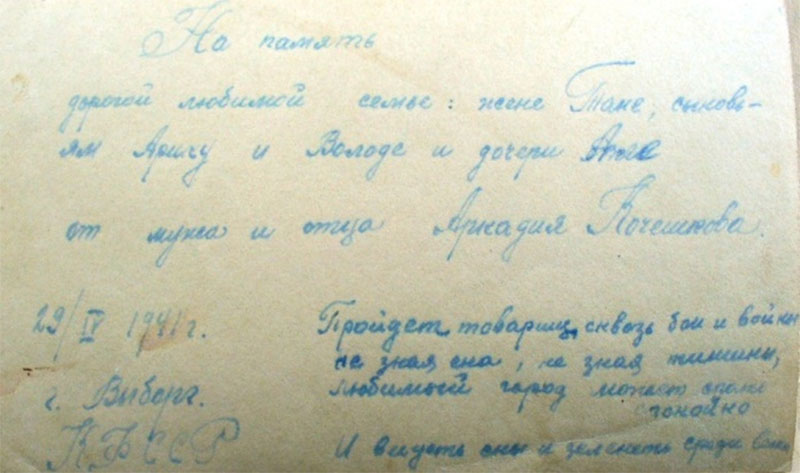 На память
дорогой любимой семье: жене Тане, сыновь-
ям Арику и Володе и дочери
от мужа и отца Аркадия Кочешкова.
29/IV 1941 г.
г. Выборг.
КФССР
Пройдет товарищ, сквозь бои и войны
не зная сна, не зная тишины,
любимый город может спать
спокойно
И видеть сны и зеленеть среди весны